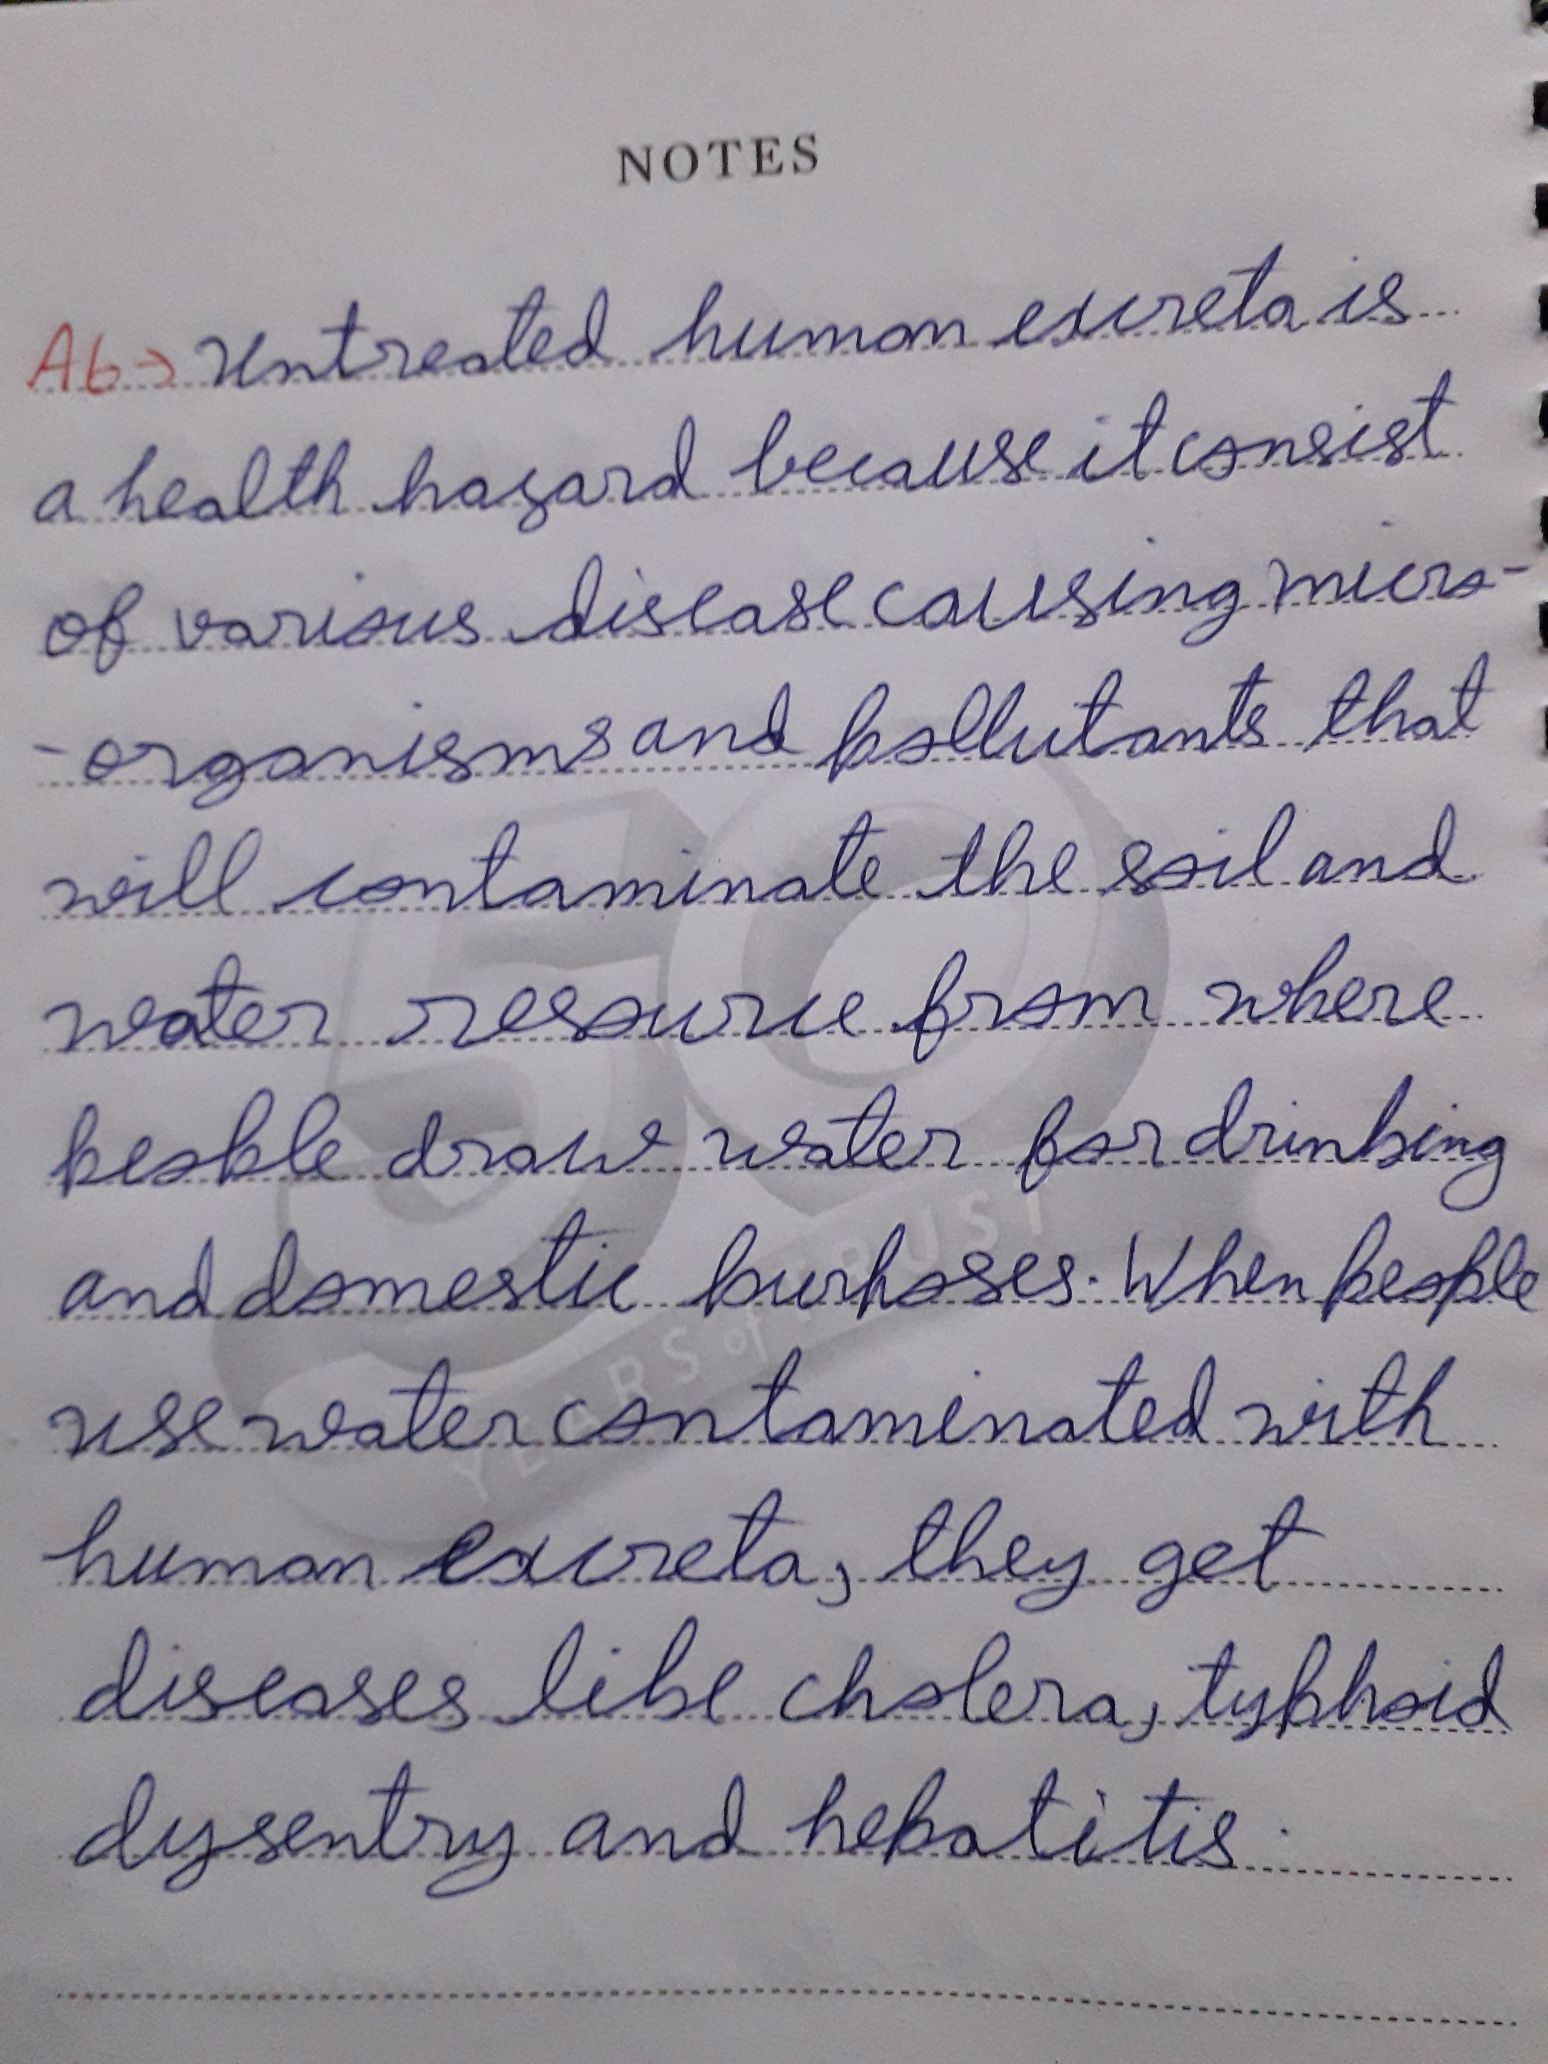 NOTES
A6→ Untreated human excreta is
a health hazard because it consist
of various disease causing micro-
-organisms and pollutants that
will contaminate the soil and
water resource from where
people draw water for drinking
and domestic purposes. When people
use water contaminated with
human excreta, they get
diseases like cholera, typhoid
dysentry and hepatitis.
50
YEARS of TRUST